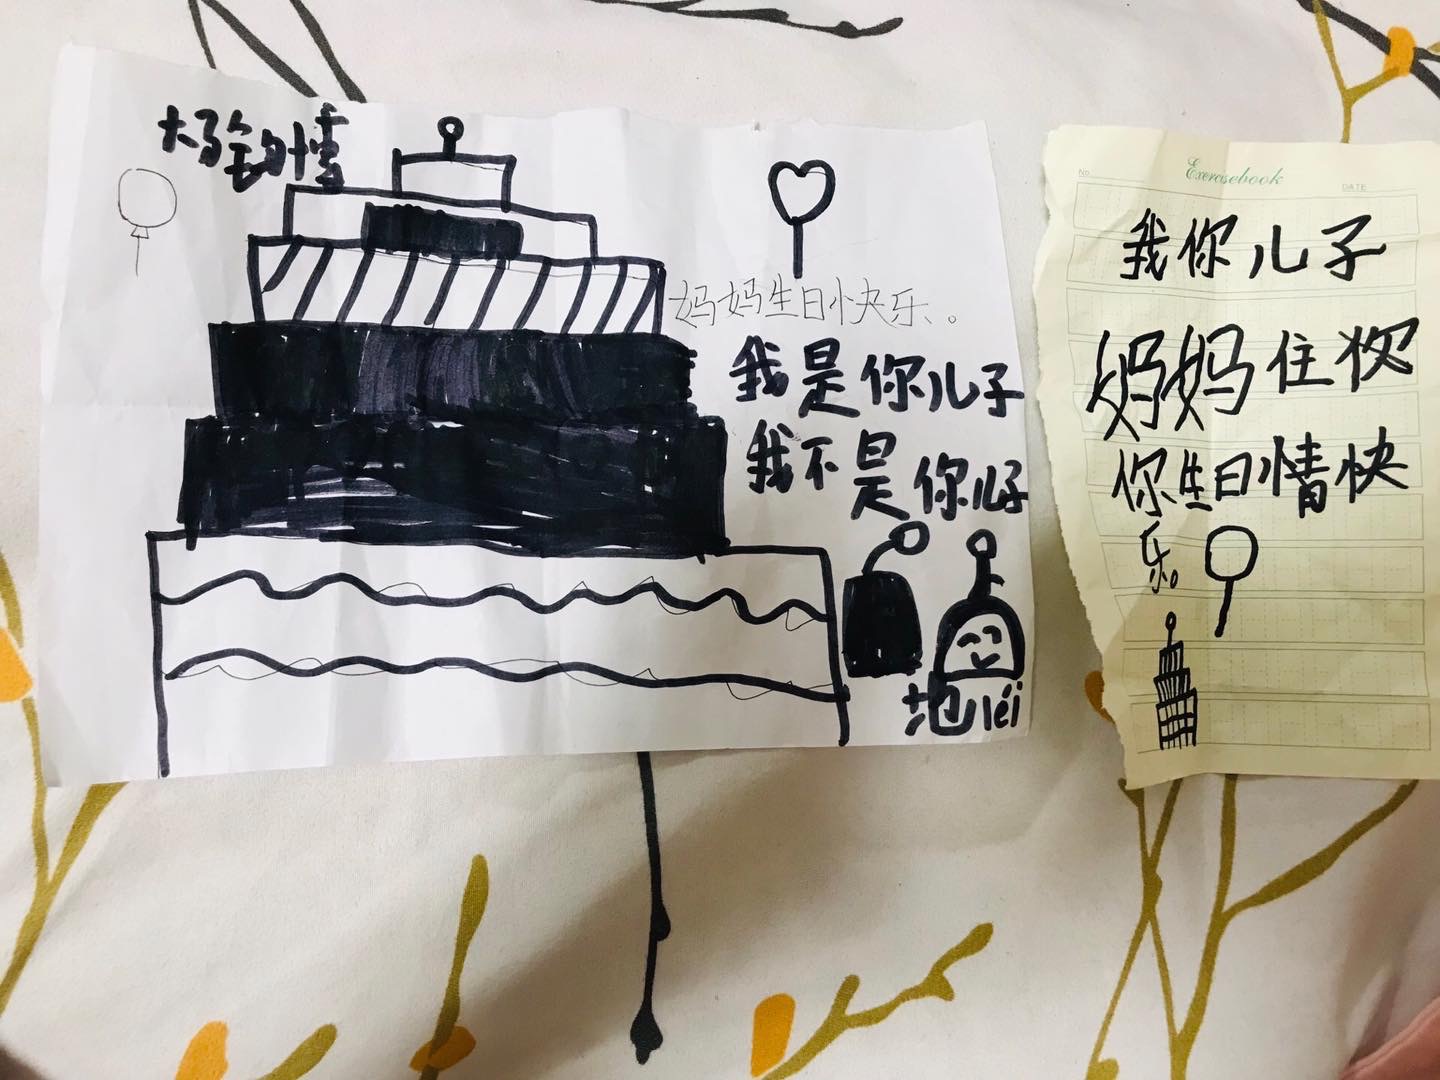 妈妈生日快乐。
我是你儿子
我不是你儿子
地léi
No.
Exercisebook
DATE
我你儿子
妈妈住
你生日情快
乐。